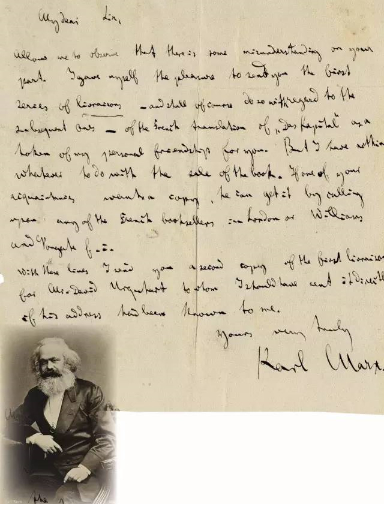 My dear Sir,
Allow me to observe that there is some misunderstanding on your
part. I gave myself the pleasure to send you the first
series of livraisons – and shall of course do so with regard to the
subsequent ones – of the French translation of "das Kapital" as a
token of my personal friendship for you. But I have nothing
whatever to do with the sale of the book. If one of your
acquaintances wants a copy, he can get it by calling
upon any of the French booksellers in London or Williams
and Norgate f. i.
With these lines I send you a second copy of the first livraisons
for Mr. David Urquhart to whom I should have sent it directly
if his address had been known to me.
Yours very truly
Karl Marx.